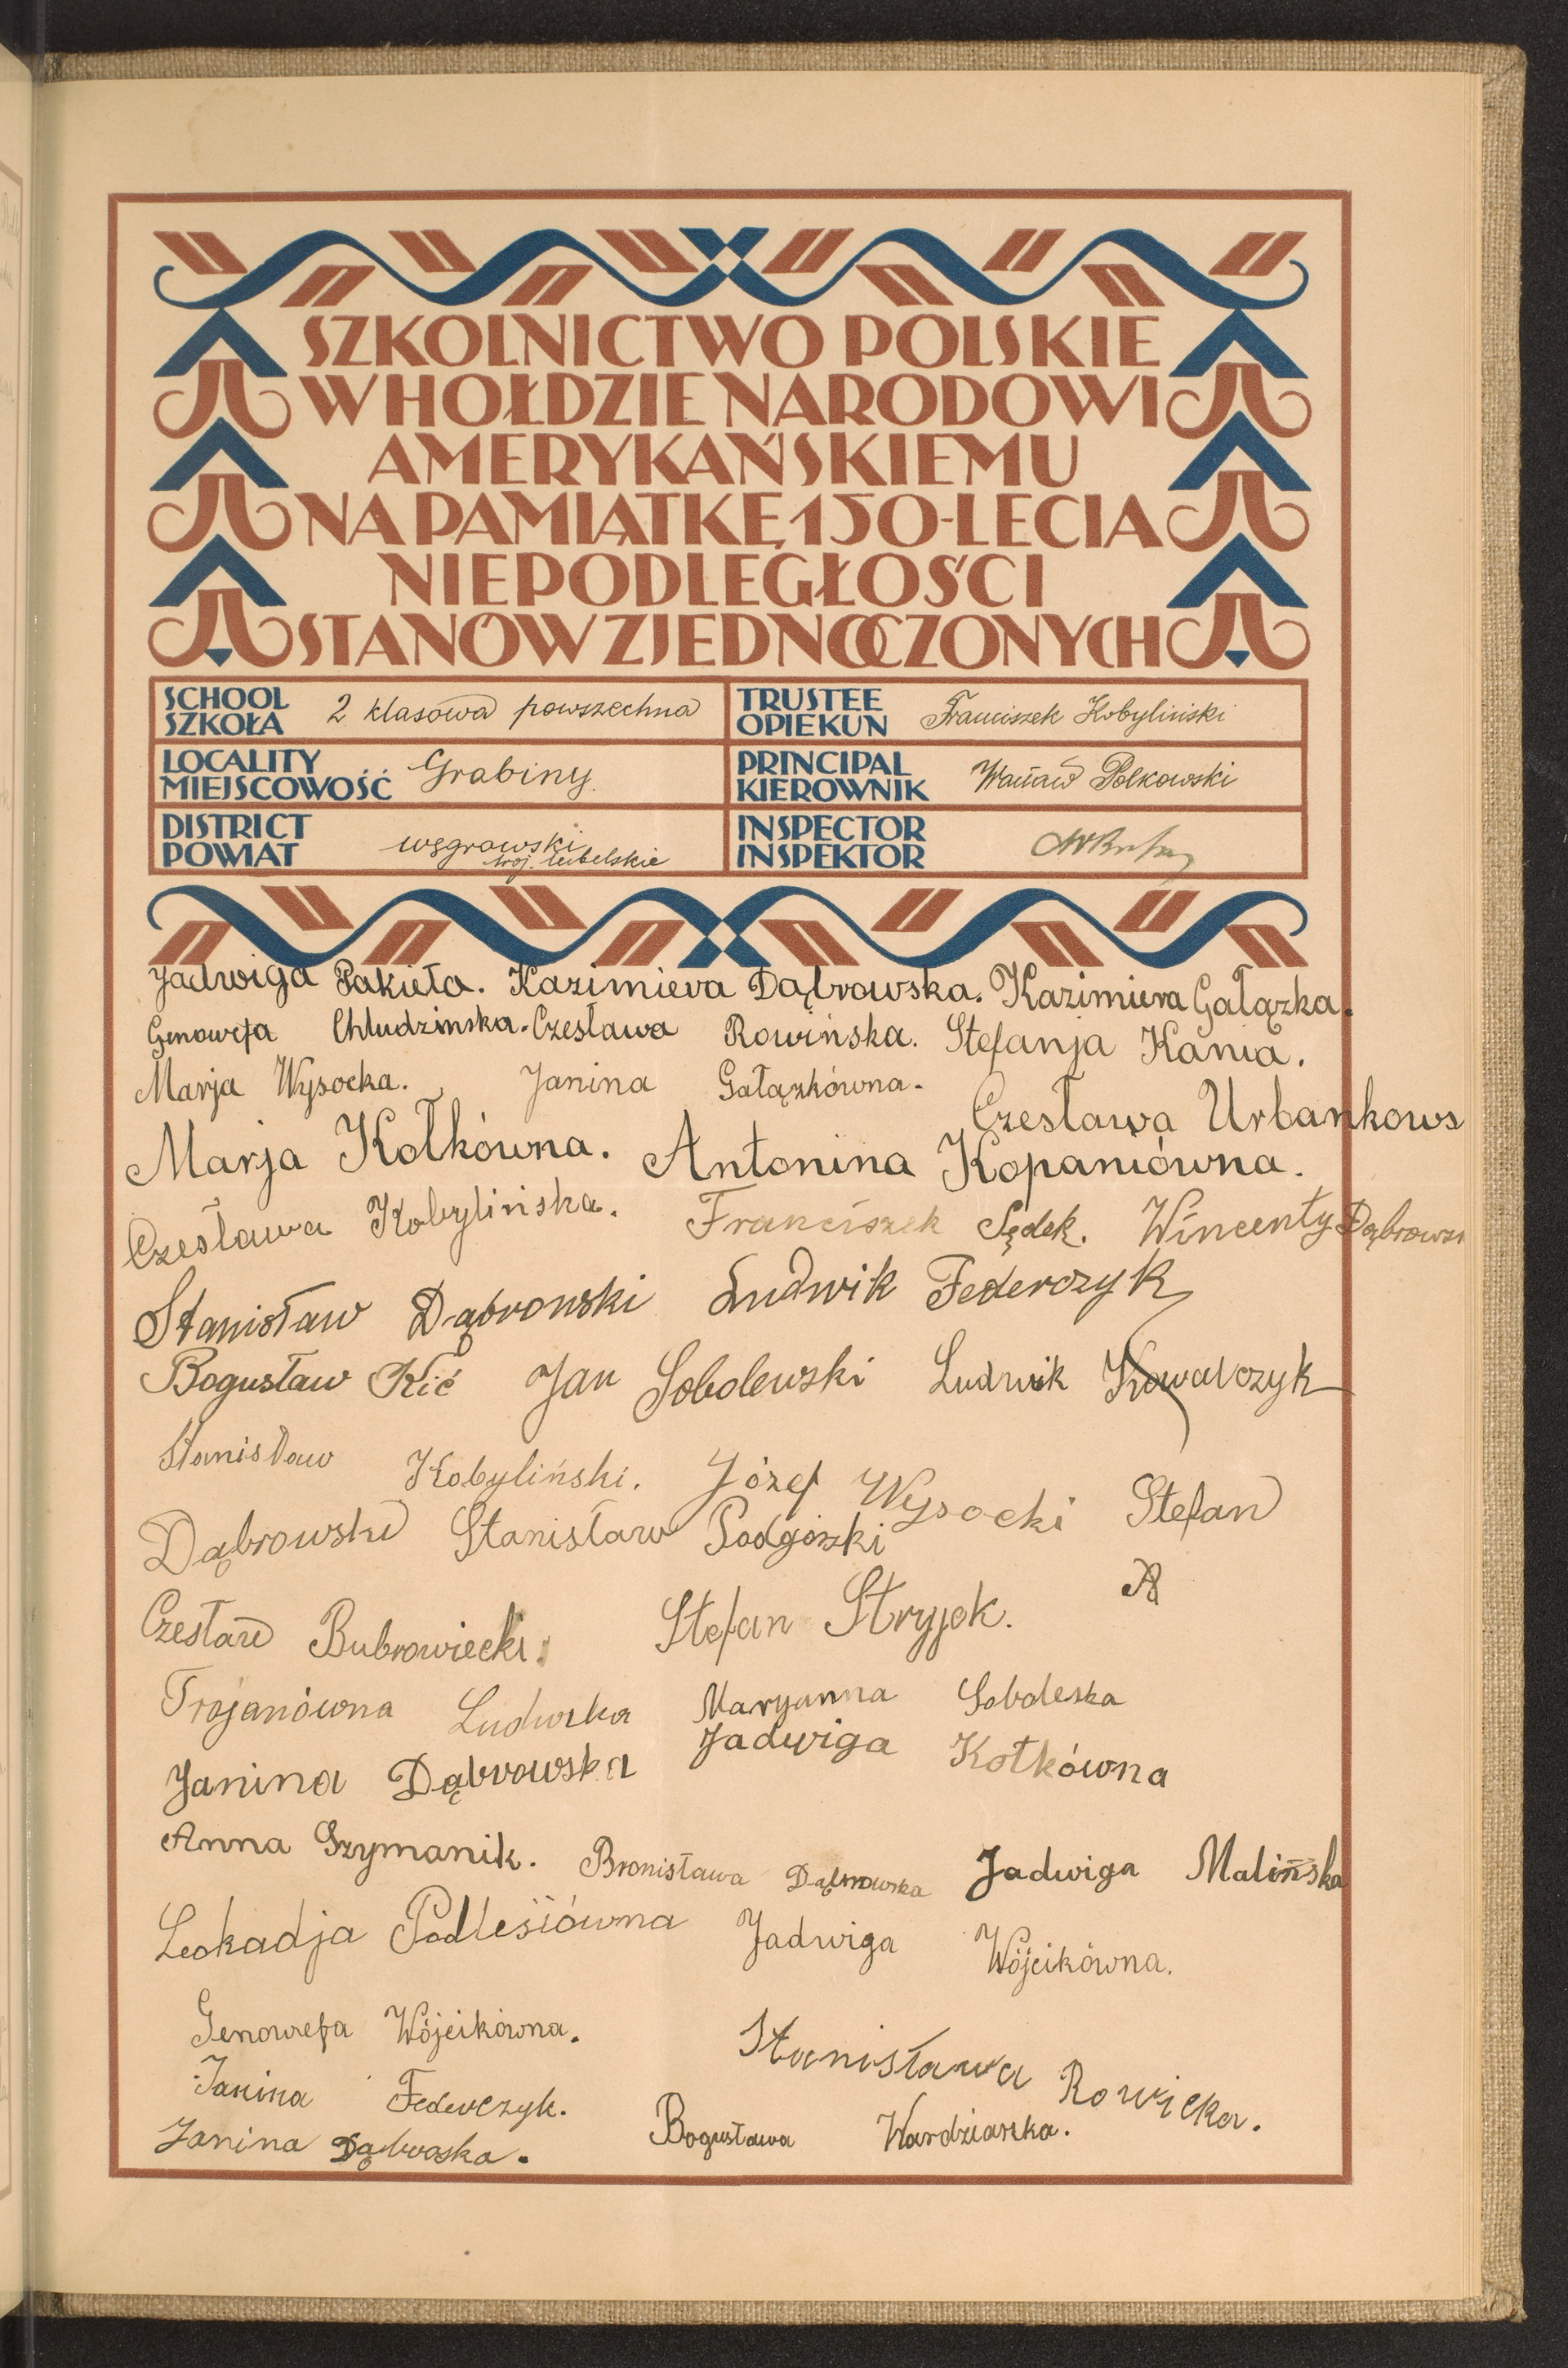 SZKOLNICTWO POLSKIE
W HOŁDZIE NARODOWI
AMERYKAŃSKIEMU
NA PAMIĄTKĘ 150-LECIA
NIEPODLEGŁOŚCI
STANÓW ZJEDNOCZONYCH
SCHOOL SZKOŁA 2 klasowa powszechna
TRUSTEE OPIEKUN Franciszek Kobyliński
LOCALITY MIEJSCOWOŚĆ Grabiny.
PRINCIPAL KIEROWNIK Wacław Polkowski
DISTRICT POWIAT węgrowski woj. lubelskie
INSPECTOR INSPEKTOR
Jadwiga Pakieła. Kazimiera Dąbrowska. Kazimiera Gałązka.
Genowefa Chludzinska. Czesława Rowińska. Stefanja Kania.
Marja Wysocka. Janina Gałązkówna.
Czesława Urbankows
Marja Kołkówna. Antonina Kopaniówna.
Czesława Kobylińska. Franciszek Sędek. Wincenty Dąbrows
Stanisław Dąbrowski Ludwik Federczyk
Bogusław Kić Jan Sobolewski Ludwik Kowalczyk
Stanisław Kobyliński. Józef Wysocki Stefan
Dąbrowski Stanisław Podgórzki
Czesław Bubrowiecki. Stefan Stryjek.
Trojanówna Ludwika Maryanna Soboleska
Janina Dąbrowska Jadwiga Kotkówna
Anna Szymanik. Bronisława Dąbrowska Jadwiga Malińska
Leokadja Podlesiówna Jadwiga Wójcikówna.
Genowefa Wójcikówna. Stanisława Rowicka.
Janina Federczyk.
Janina Dąbroska. Bogusława Wardziaszka.